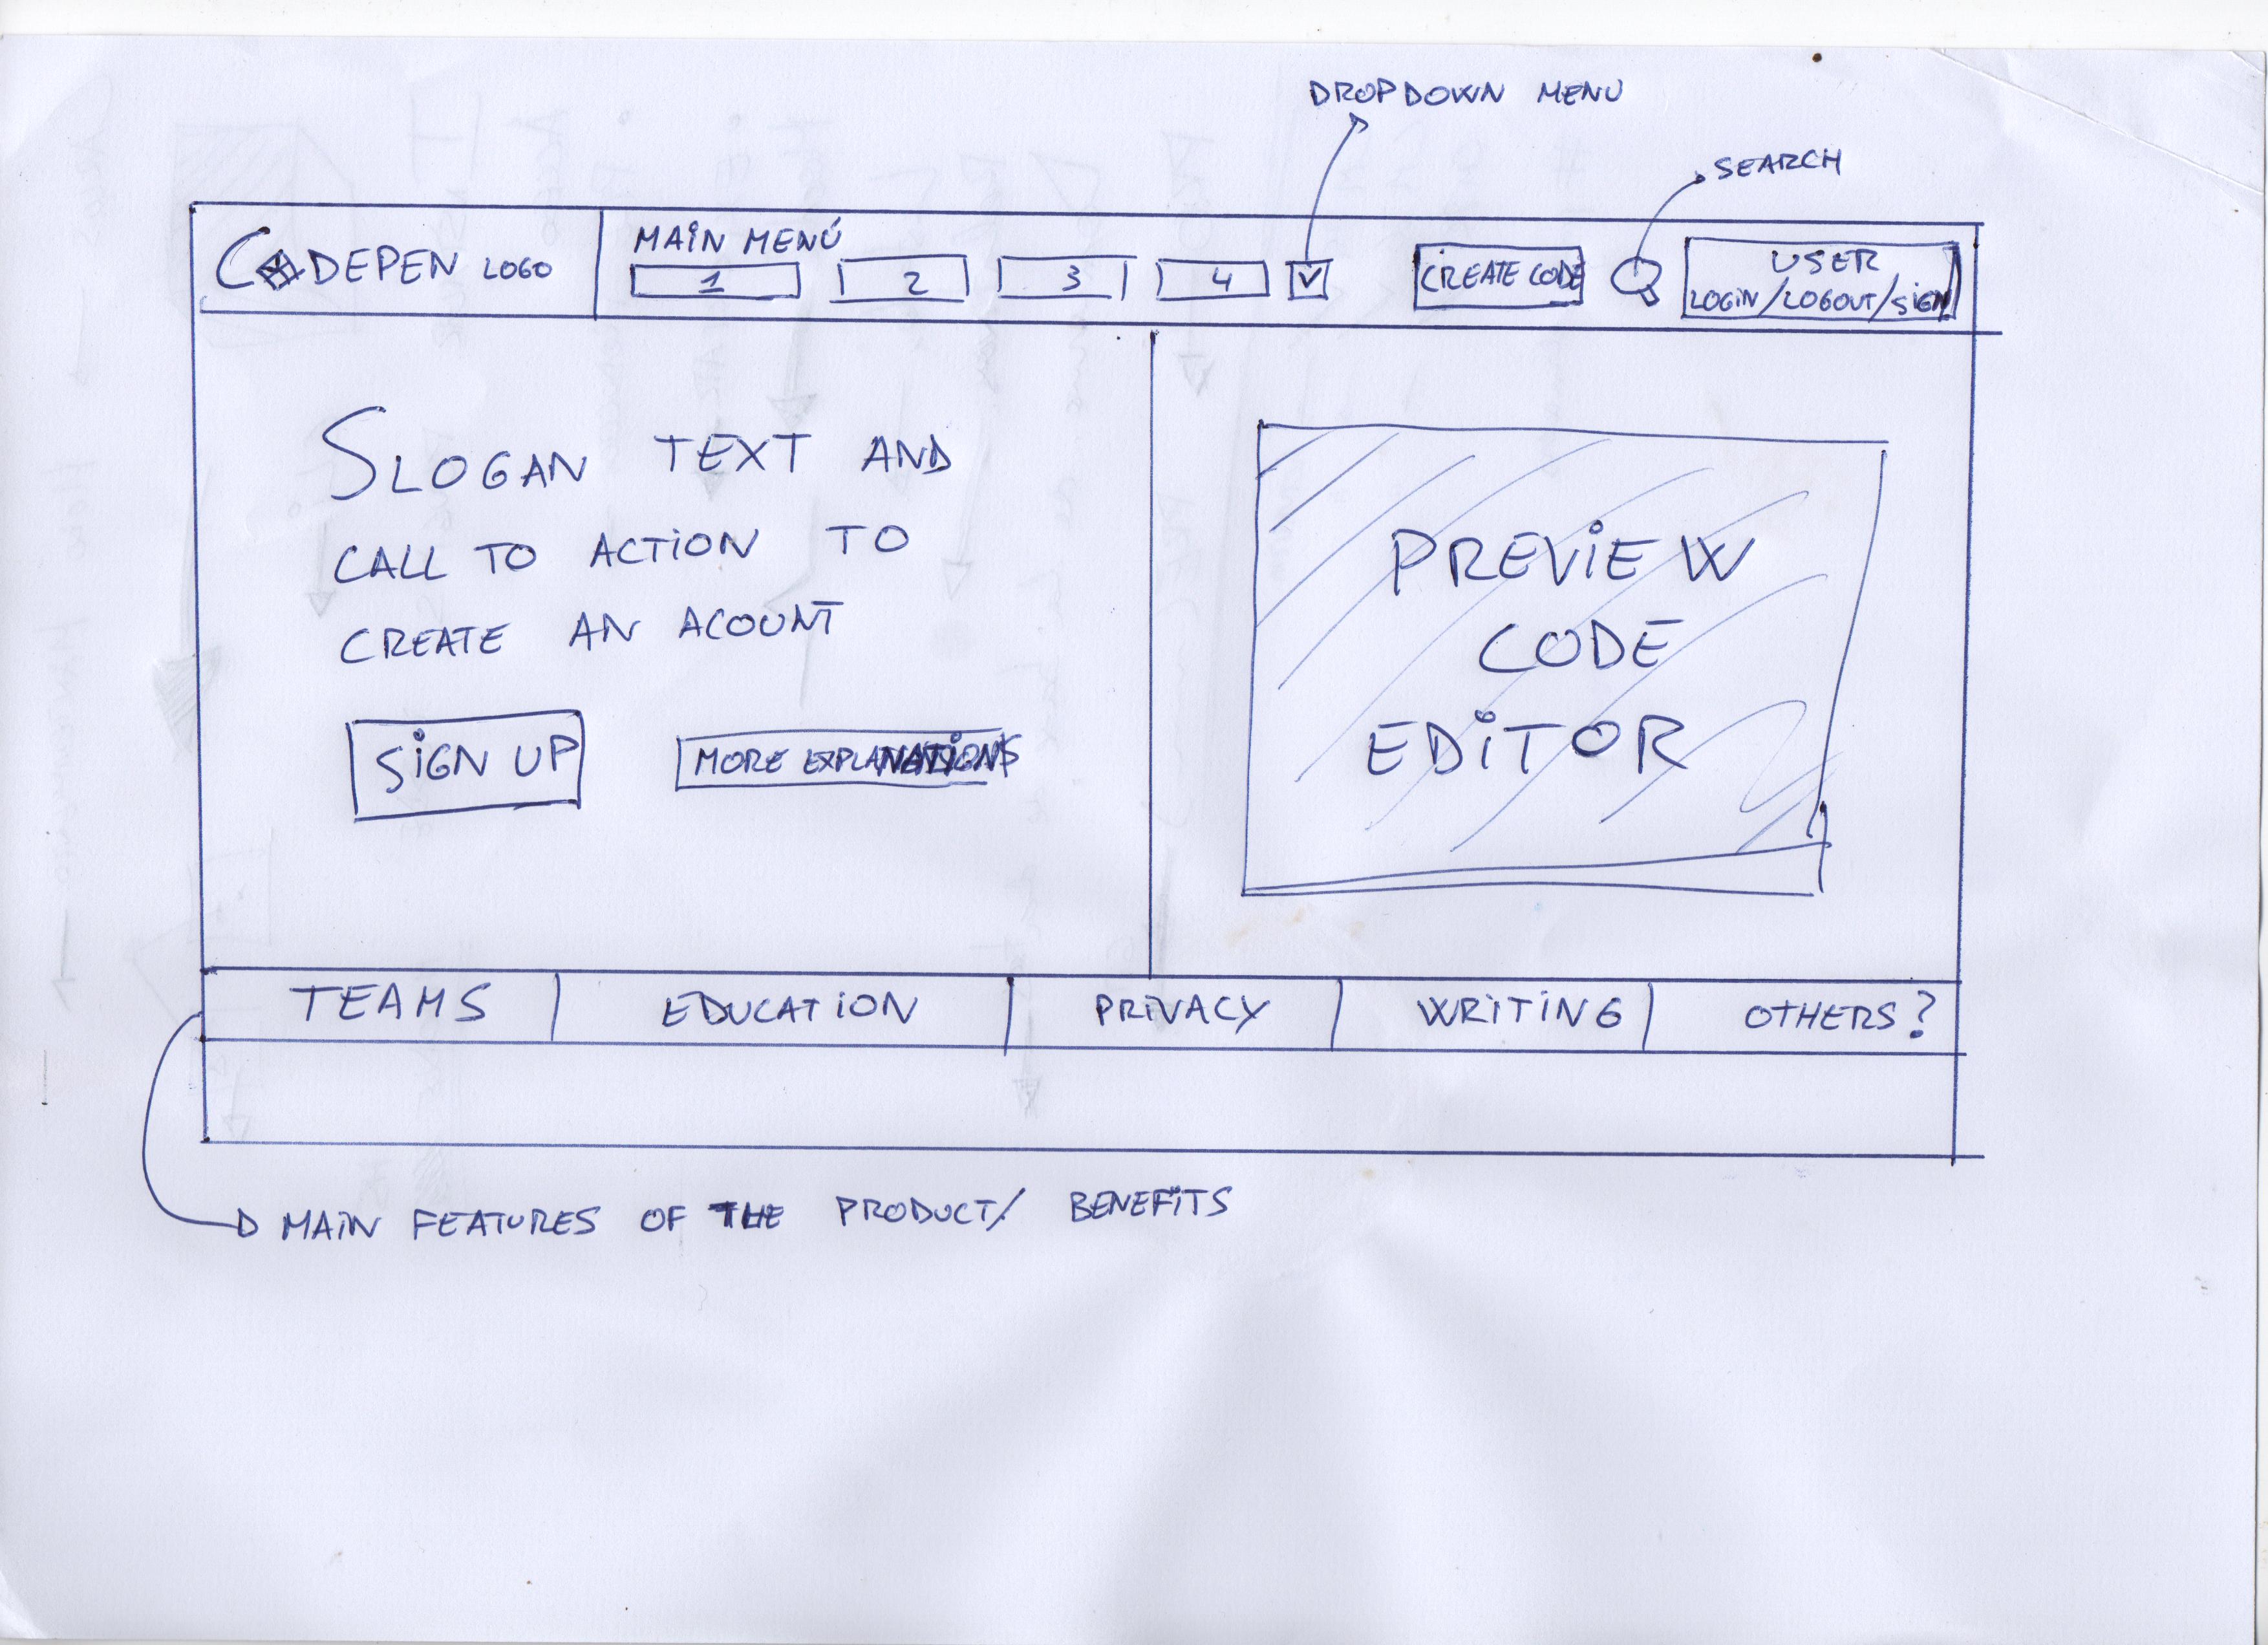 DROPDOWN MENU
SEARCH
CODEPEN LOGO
MAIN MENÚ
1 2 3 4
CREATE CODE
USER
LOGIN/LOGOUT/SIGN
SLOGAN TEXT AND
CALL TO ACTION TO
CREATE AN ACOUNT
SIGN UP
MORE EXPLANATIONS
PREVIEW
CODE
EDITOR
TEAMS EDUCATION PRIVACY WRITING OTHERS?
MAIN FEATURES OF THE PRODUCT/ BENEFITS